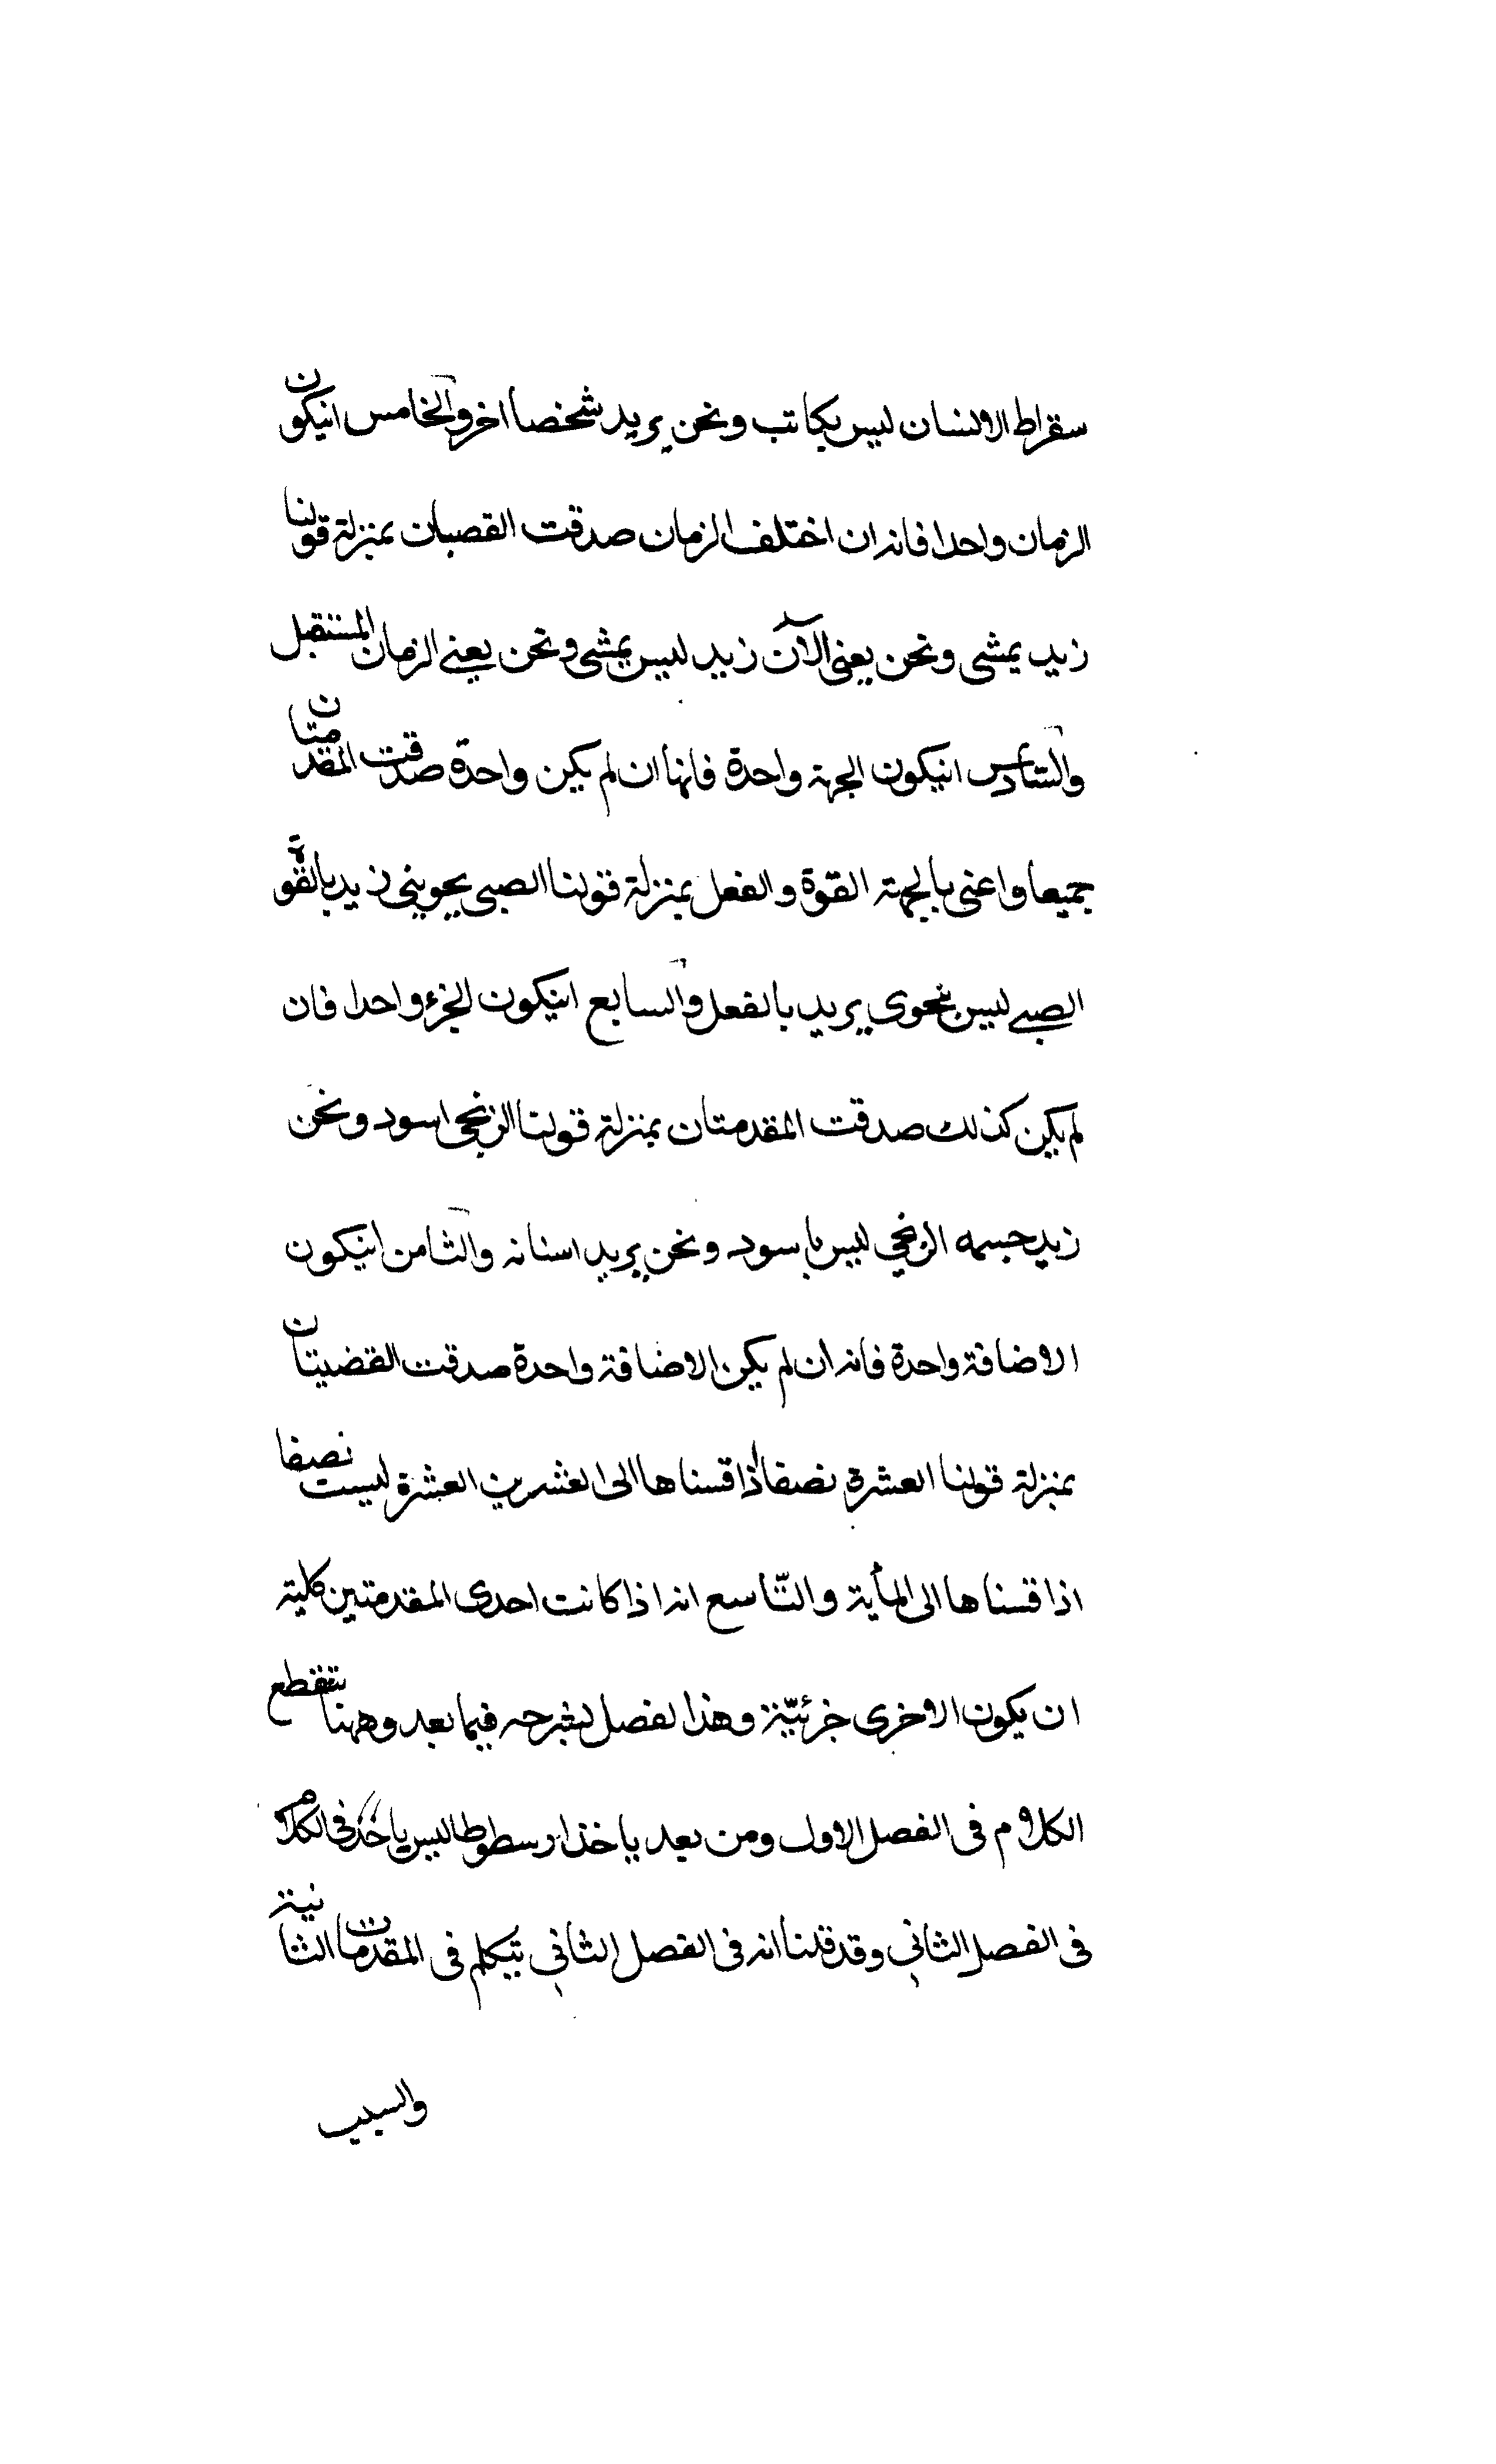 سقراط الانسان ليس بكاتب ونحن يريد شخصا اخر والخامس انيكون
الزمان واحدا فانه ان اختلف الزمان صدقت القصبان بمنزلة قولنا
زيد يمشى ونحن يعنى الآن زيد ليس يمشى ونحن يعنى الزمان المستقبل
والسّادس انيكون الجهة واحدة فانها ان لم يكن واحدة صدقت المقدمتان
جميعا واعنى بالجهة القوة والفعل بمنزلة قولنا الصبى يحوينى زيد بالقوّة
الصبى ليس بنحوى يريد بالفعل والسابع انيكون الجزء واحدا فان
لم يكن كذلك صدقت المقدمتان بمنزلة قولنا الزنجى اسود ونحن
زيد جسمه الزنجي ليس باسود ونحن يريد اسنانه والثامن انيكون
الاضافة واحدة فانه ان لم يكن الاضافة واحدة صدقت القضيتان
بمنزلة قولنا العشرة نصفا اذا قسناها الى العشرين العشرة ليست نصفا
اذا قسناها الى المأية والتّاسع انه اذا كانت احدى المقدمتين كلية
ان يكون الاخرى جزئيّة وهذا لفصل لشرحه فيما بعد وههنا ينقطع
الكلام فى الفصل الاول ومن بعد ياخذ ارسطوطاليس ياخذ فى الكلام
فى الفصل الثاني وقد قلنا انه فى الفصل الثاني يتكلم فى المقدمات الثانية
والسبب